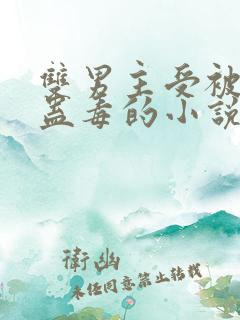 雙男主受被
蠱毒的小說
衛幽
未经同意禁止转载